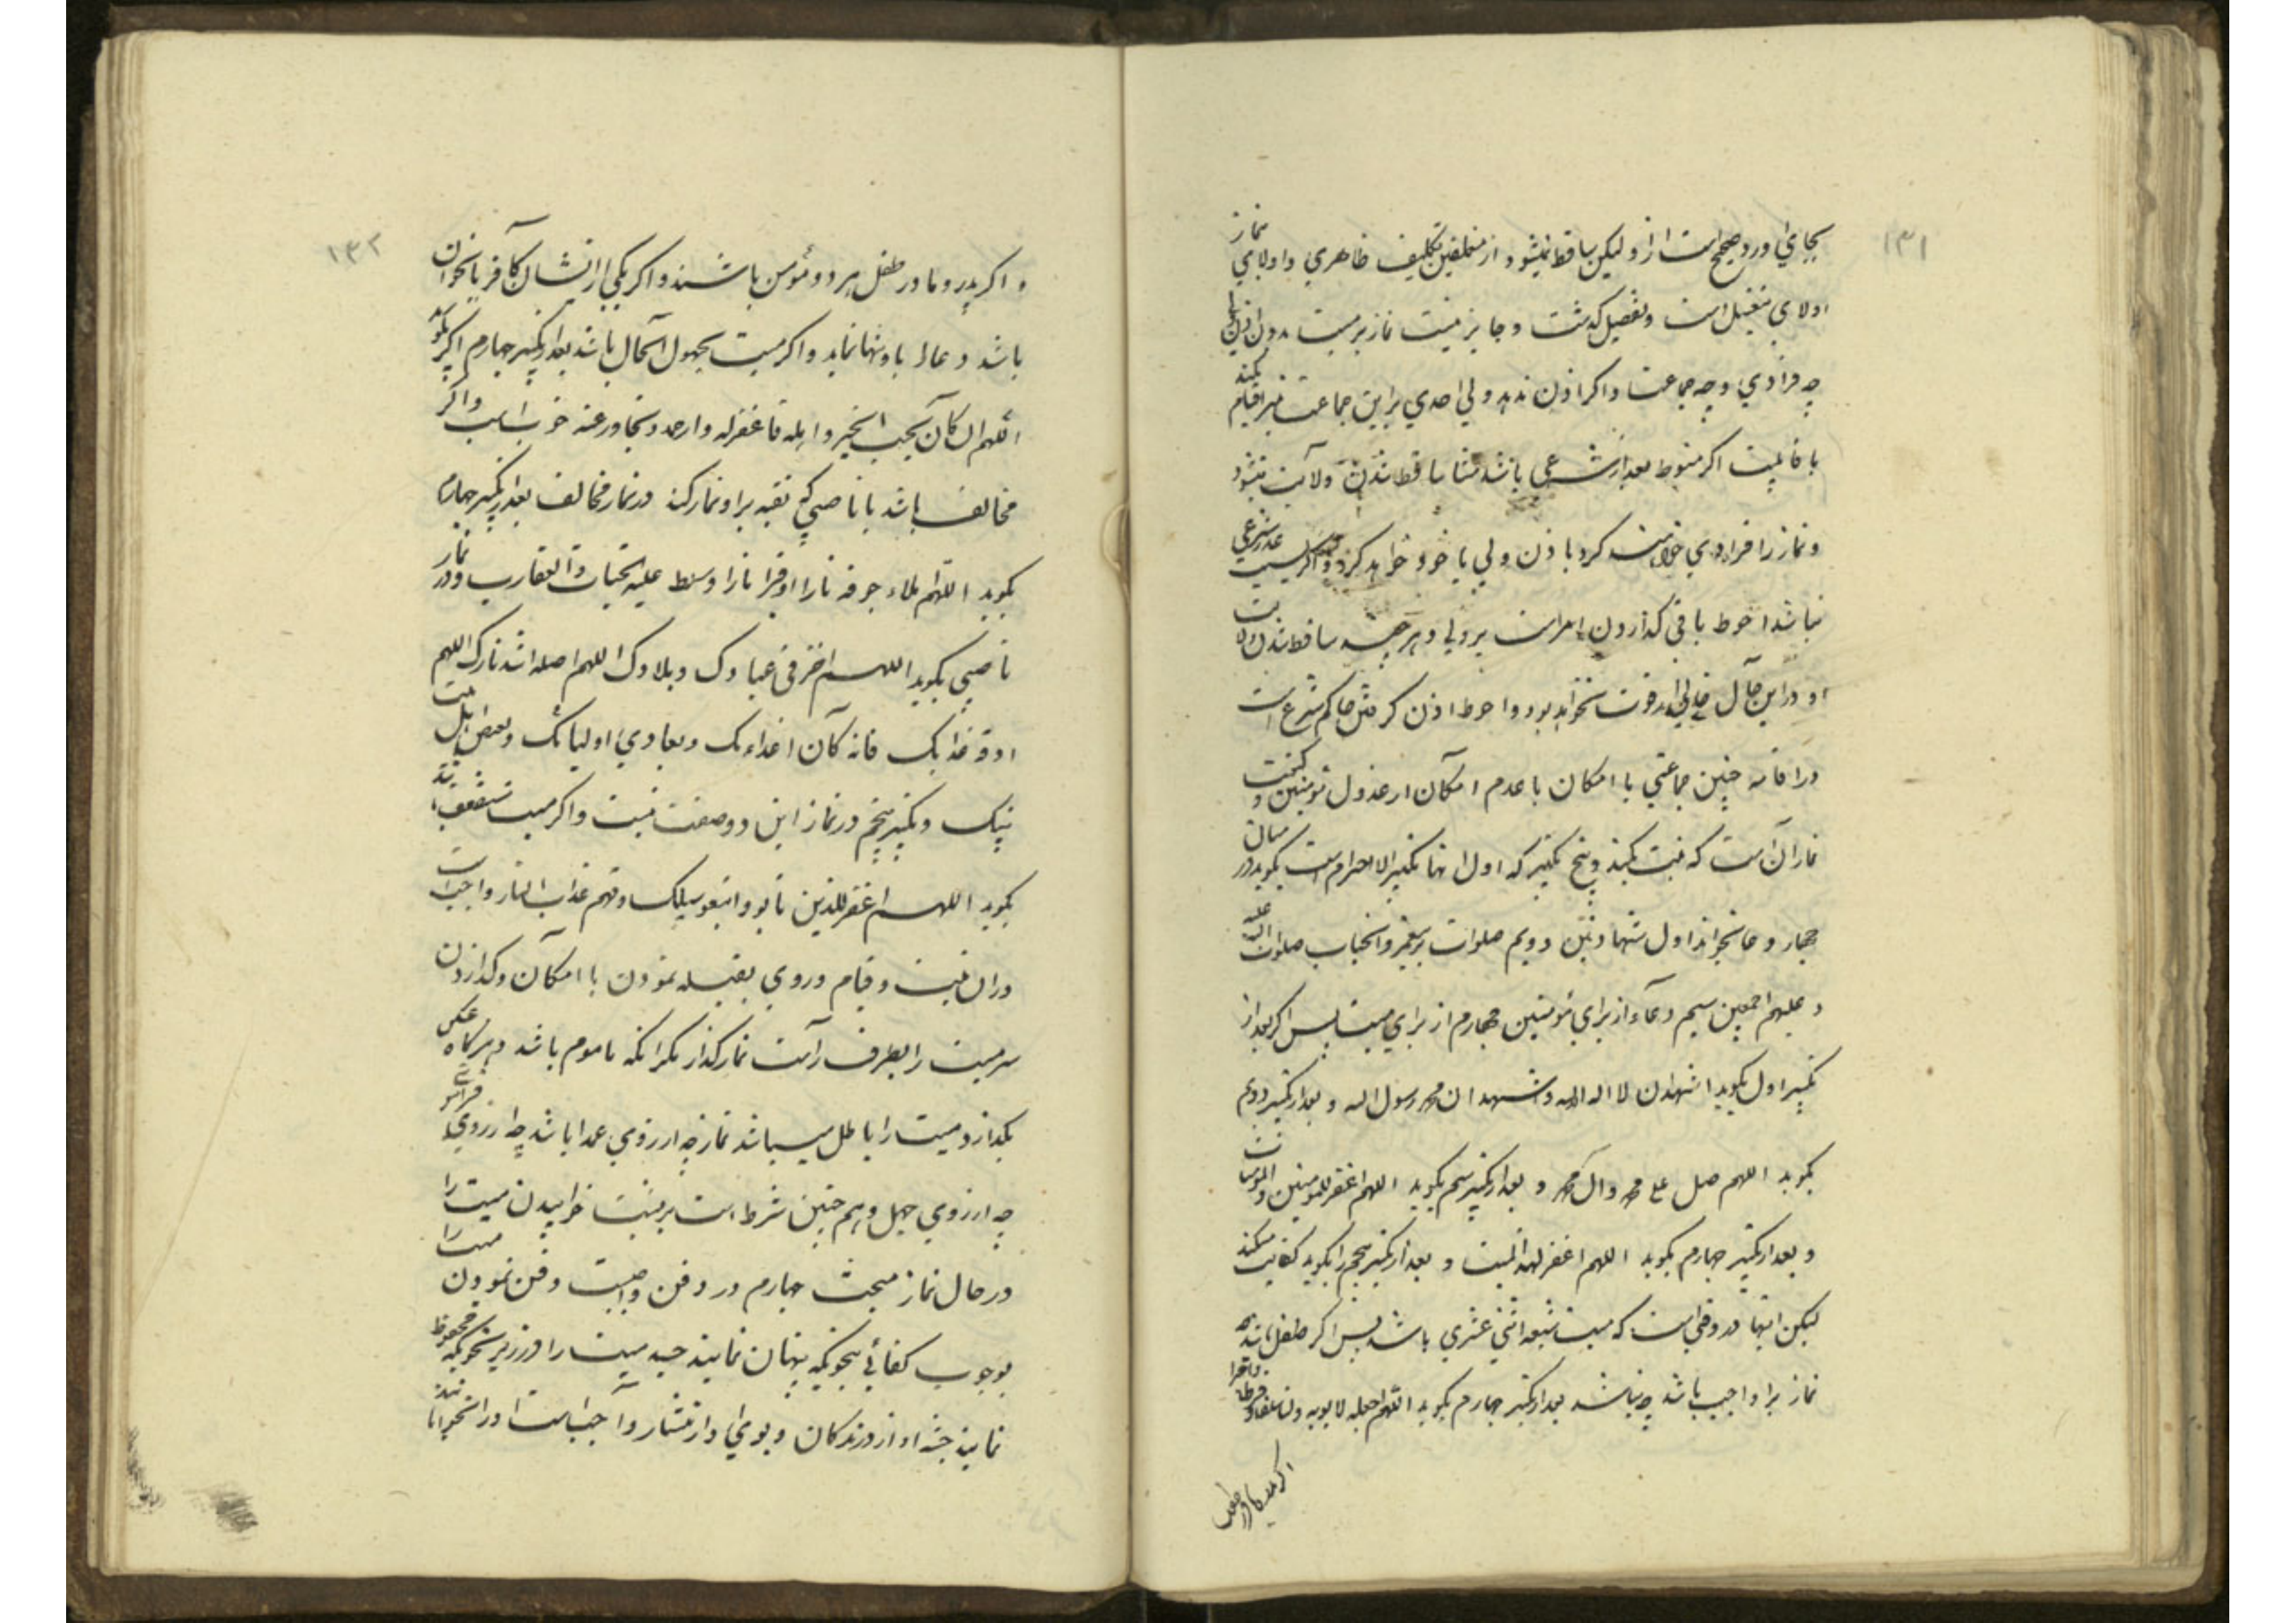 ۱۳۱
بجای آورد صحیح است از او لیکن ساقط نمیشود از مکلفین بتکلیف ظاهری و اولای نماز
اولای بتغسیل است و تفصیل گذشت و جایز نیست نماز بر میت بدون اذن
چه فرادی و چه جماعت و اگر اذن ندهد ولی احدی براین جماعت نیز اقیام
باشد ساقط شدن ولایت
و نماز را فرادی خواست کرد باذن ولی یا خود خواهد کرد و اگر عذر شرعی
نباشد احوط باقی گذاردن امر است بر ولی و هر چه ساقط شدن ولایت
او در این حال خالی از قوت نخواهد بود و احوط اذن گرفتن حاکم شرع است
در اقامه چنین جماعتی با امکان با عدم امکان از عدول مؤمنین و کیفیت
نماز آنست که نیت بکند و پنج تکبیر که اول انها تکبیر الاحرام است بگوید در میان
چهار دعا بخواند اول شهادتین دویم صلوات بر پیغمبر و انجناب صلوات الله علیه
و علیهم اجمعین سیم دعا از برای مؤمنین چهارم از برای میت پس اگر بعد از
تکبیر اول بگوید اشهد ان لا اله الا الله و اشهد ان محمد رسول الله و بعد از تکبیر دویم
بگوید اللهم صل علی محمد و آل محمد و بعد از تکبیر سیم بگوید اللهم اغفر للمومنین و المومنات
و بعد از تکبیر چهارم بگوید اللهم اغفر لهذا المیت و بعد از تکبیر پنجم را بگوید کفایت میکند
لیکن اینها در وقتی است که میت شیعه اثنی عشری باشد پس اگر طفل باشد
نماز بر او واجب باشد چه نباشد بعد از تکبیر چهارم بگوید اللهم اجعله لابویه و لنا سلفا و فرطا و اجرا
۱۳۲
و اگر پدر و مادر طفل هر دو مؤمن باشند و اگر یکی از ایشان کافر یا نحو آن
باشد دعا را باو تنها نماید و اگر میت مجهول الحال باشد بعد از تکبیر چهارم اگر بگوید
اللهم ان کان یحب الخیر و اهله فاغفر له و ارحمه و تجاوز عنه خوب است و اگر
مخالف باشد یا ناصبی که تقیه بر او نماز کند در نماز مخالف بعد از تکبیر چهارم
بگوید اللهم املاء جوفه نارا و قبره نارا و سلط علیه الحیات و العقارب و در نماز
ناصبی بگوید اللهم اخز فی عبادک و بلادک اللهم اصله اشد نارک اللهم
اذقه عذابک فانه کان اعداءک و یعادی اولیائک و یبغض اهل بیت
نبیک و تکبیر پنجم در نماز این دو صفت نیست و اگر میت مستضعف باشد
بگوید اللهم اغفر للذین تابوا و اتبعوا سبیلک و قهم عذاب النار و واجب است
در ان نیت و قیام و روی بقبله نمودن با امکان و گذاردن
سر میت را بطرف راست نماز گذار مگر انکه ماموم باشد و هر گاه عکس
بگذارد میت را باطل میباشد نماز چه از روی عمد باشد چه از روی فراموشی
چه از روی جهل و هم چنین شرط است بر پشت خوابیدن میت را
در حال نماز مبحث چهارم در دفن واجبست دفن نمودن میت را
بوجوب کفائی بنحویکه پنهان نمایند جسد میت را در زیر بنحویکه محفوظ
نمایند جثه او از درندگان و بوی او از انتشار و واجب است او را بخوابانند